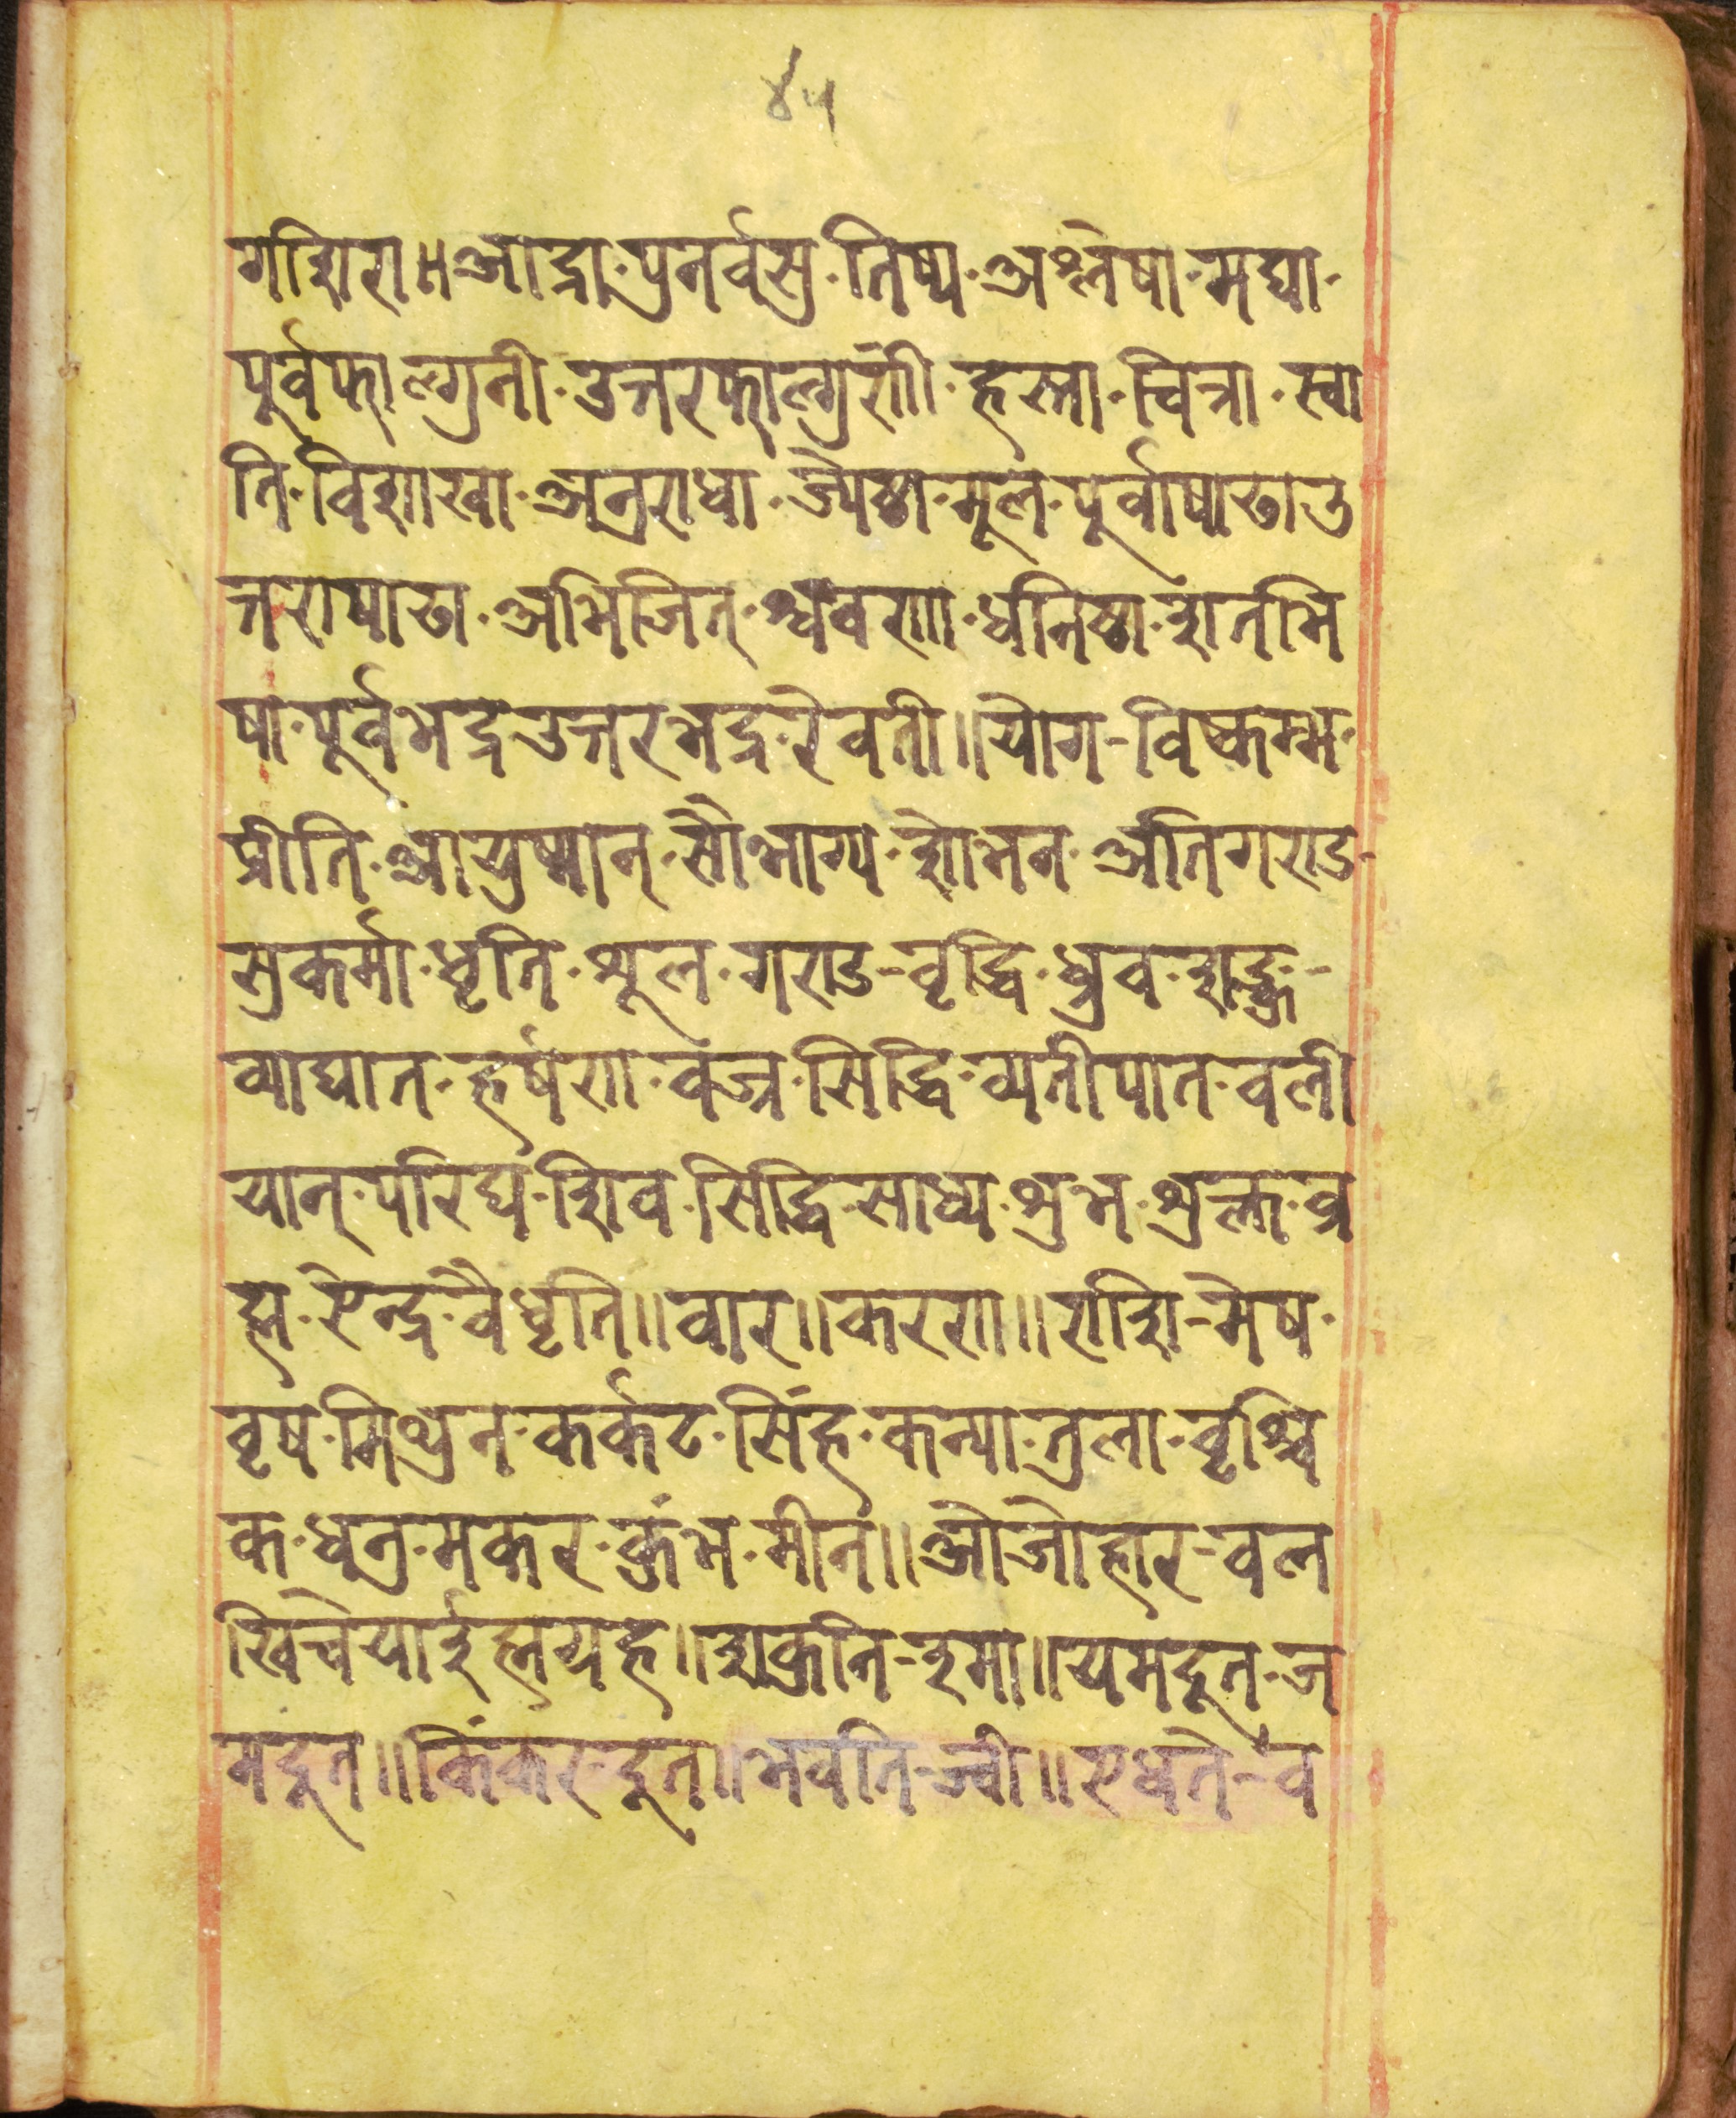 ४५
गशिरा॥आद्रा·पुनर्वसु·तिष्य·अश्लेषा·मघा·
पूर्वफाल्गुनी·उत्तरफाल्गुणी·हस्ता·चित्रा·स्वा
ति·विशाखा·अनुराधा·ज्येष्ठा·मूल·पूर्वाषाढाउ
त्तराषाढा·अभिजित्·श्रवणा·धनिष्ठा·शतभि
षा·पूर्वभद्र·उत्तरभद्र·रेवती॥योग-विष्कम्भ·
प्रीति·आयुष्मान्·सौभाग्य·शोभन·अतिगण्ड-
सुकर्मा·धृति·शूल·गण्ड-वृद्धि·ध्रुव·शङ्कु-
व्याघात·हर्षण·वज्र·सिद्धि·व्यतीपात·वली
यान्·परिघ·शिव·सिद्धि·साध्य·शुभ·शुक्ल·व्र
ह्म·ऐन्द्र·वैधृति॥वार॥करण॥राशि-मेष·
वृष·मिथुन·कर्कट·सिंह·कन्या·तुला·वृश्चि
क·धनु·मकर·कुंभ·मीन॥ओजोहार-वल
खिचेयाईह्मग्रह॥शकुनि-इमा॥यमदूत-ज
मदूत॥किंकर-दूत॥भवति-ज्वी॥एधते-व